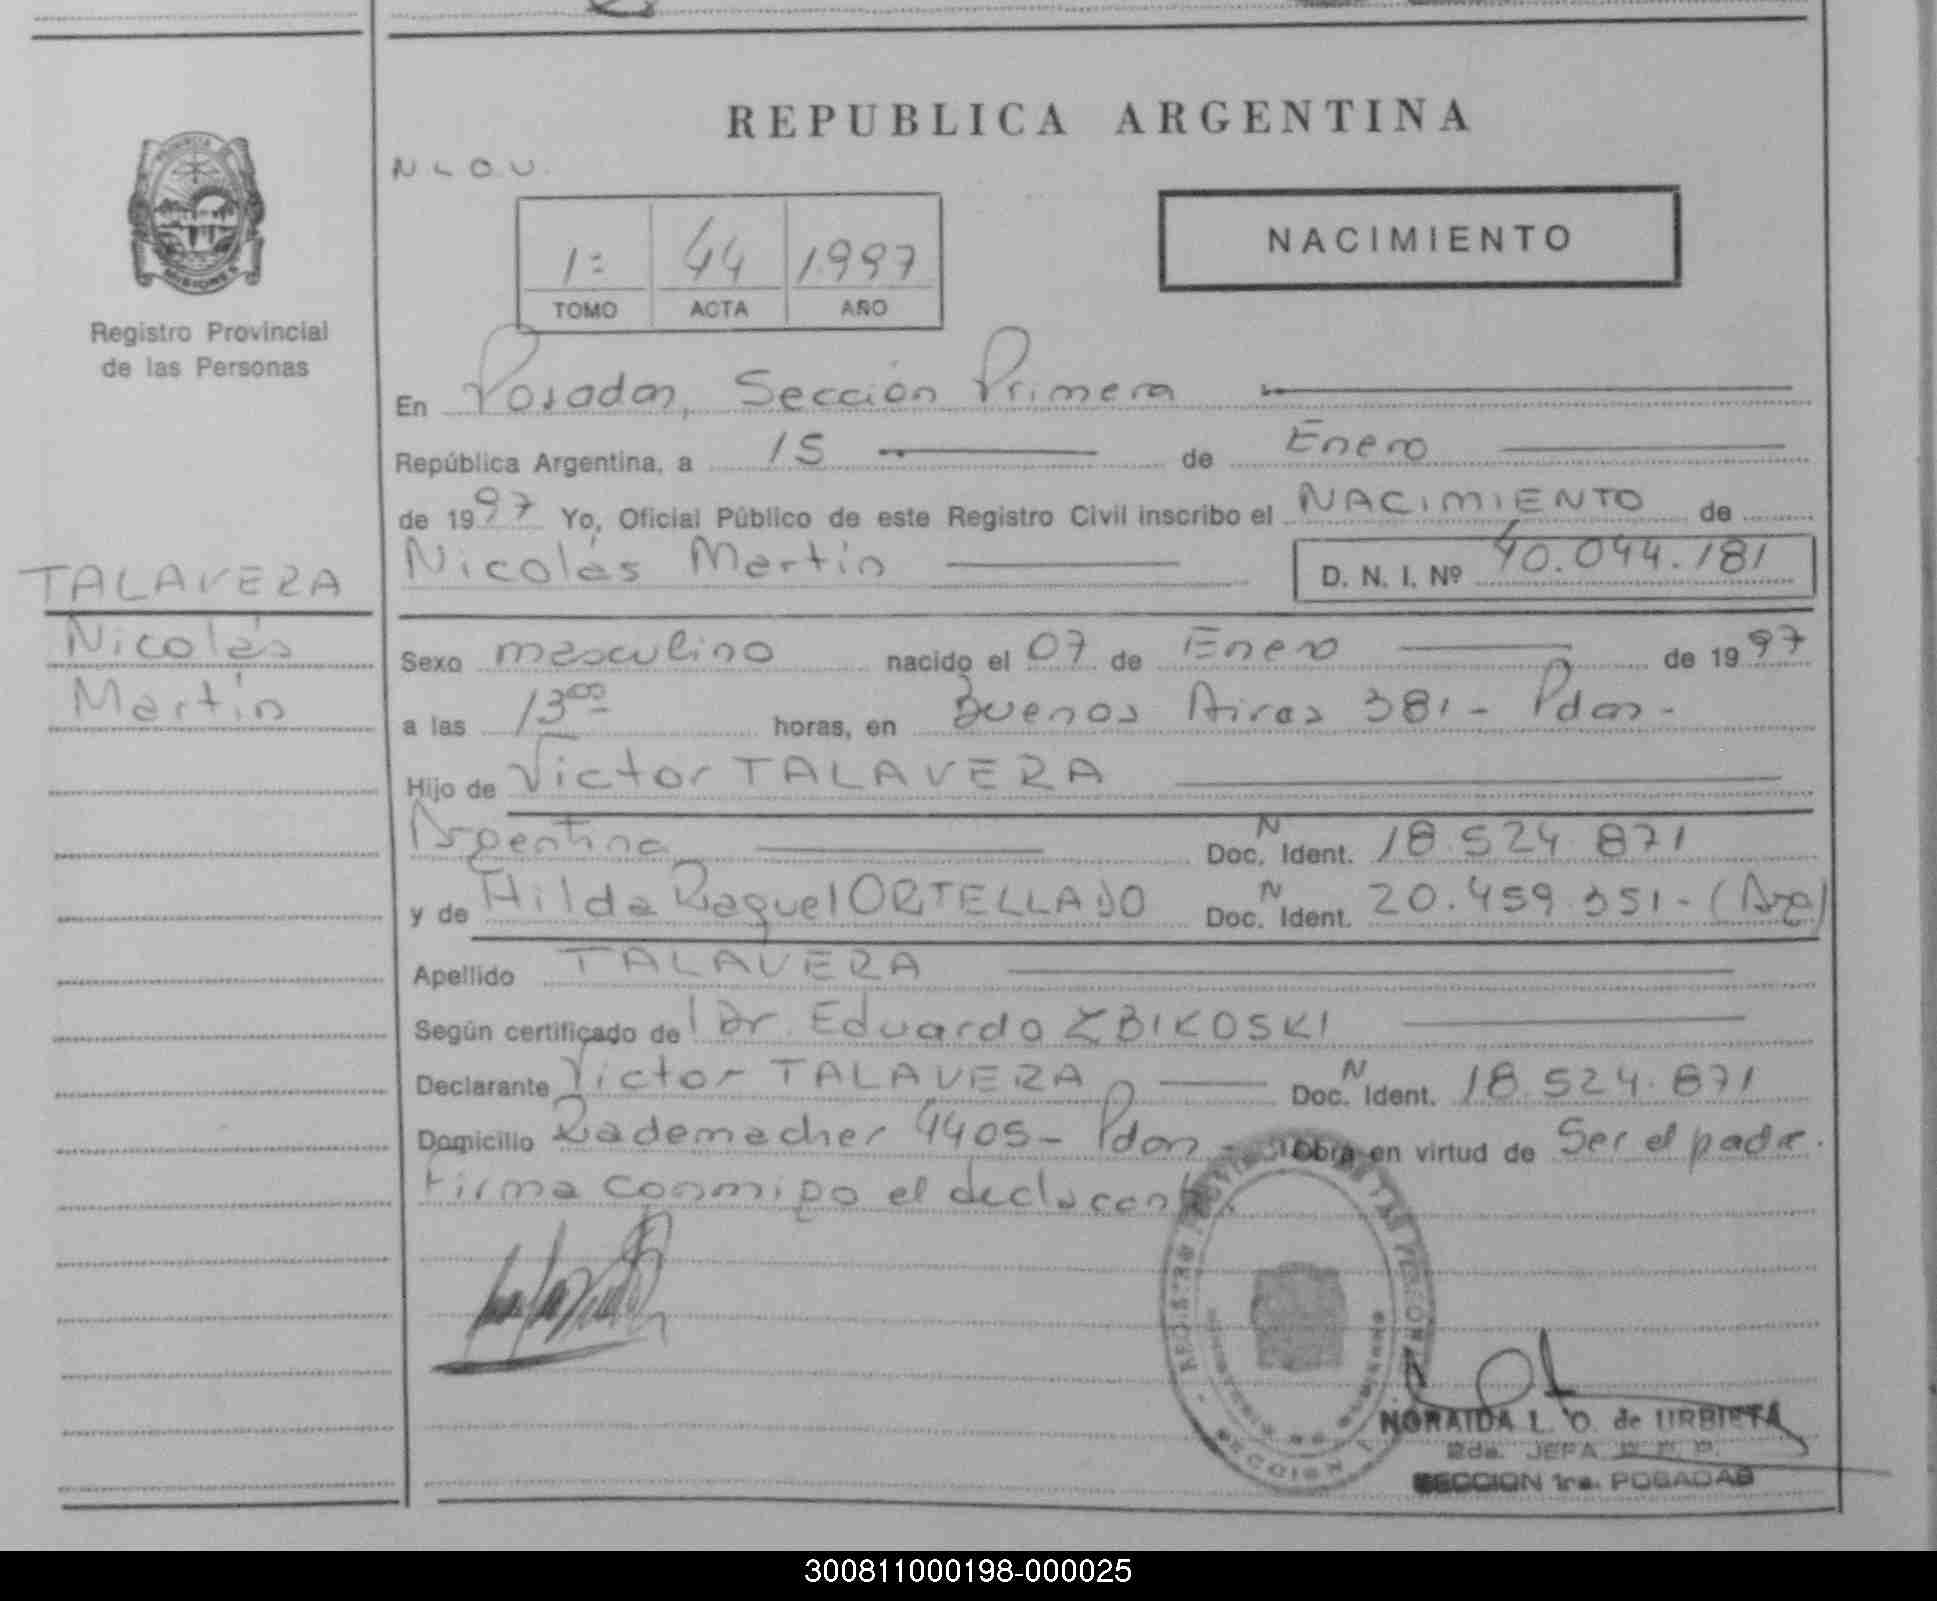 REPUBLICA ARGENTINA
N L O U.
1º 44 1997
TOMO ACTA AÑO
NACIMIENTO
PROVINCIA
MISIONES
Registro Provincial
de las Personas
TALAVERA
Nicolás
Martín
En Posadas, Sección Primera
República Argentina, a 15 de Enero
de 1997 Yo, Oficial Público de este Registro Civil inscribo el NACIMIENTO de
Nicolás Martín D. N. I. Nº 40.044.181
Sexo masculino nacido el 07 de Enero de 1997
a las 13⁰⁰ horas, en Buenos Aires 381 - Pdas -
Hijo de Victor TALAVERA
Argentina Doc. N Ident. 18.524.871
y de Hilda Raquel ORTELLADO Doc. N Ident. 20.459.351 - (Arg)
Apellido TALAVERA
Según certificado del Dr. Eduardo ZBIKOSKI
Declarante Victor TALAVERA Doc. N Ident. 18.524.871
Domicilio Rademacher 4405 - Pdas - Obra en virtud de Ser el padre.
Firma conmigo el declarante.
NORAIDA L. O. de URBIETA
2da. JEFA R. P. P.
SECCION 1ra. POSADAS
300811000198-000025